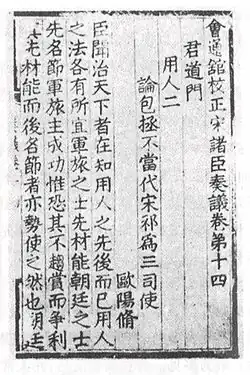 會通館校正宋諸臣奏議卷第十四
君道門
用人二
論包拯不當代宋祁為三司使
歐陽脩
臣聞治天下者在知用人之先後而已用人
之法各有所宜軍旅之士先材能朝廷之士
先名節軍旅主成功惟恐其不趨賞而争利
先材能而後名節者亦勢使之然也朝廷